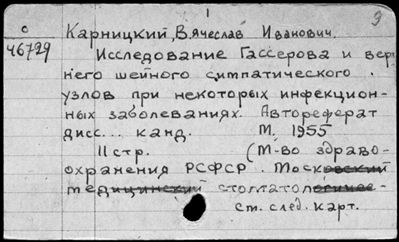 с
46729
Карницкий, Вячеслав Иванович.
Исследование Гассерова и верх
него шейного симпатического
узлов при некоторых инфекцион-
ных заболеваниях. Автореферат
дисс... канд. М. 1955
11 стр. (М-во здраво-
охранения РСФСР. Московский
медицинский стоматологичес-
ст. след. карт.